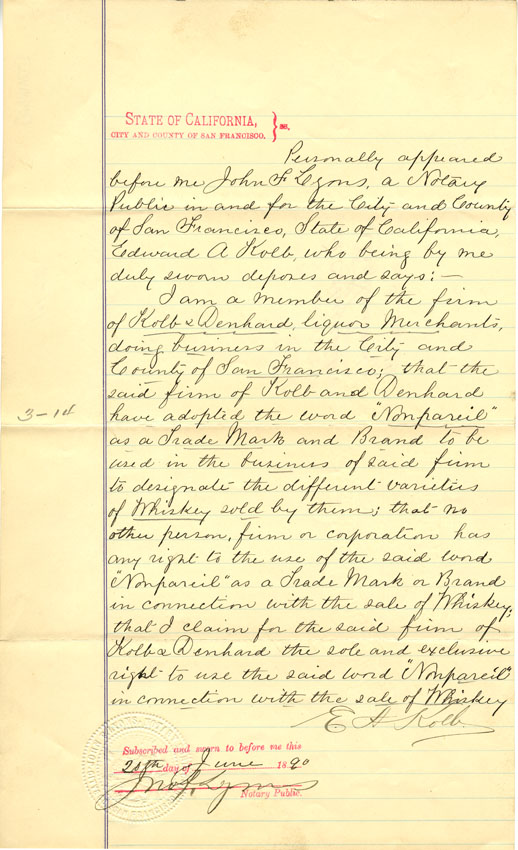 STATE OF CALIFORNIA,
CITY AND COUNTY OF SAN FRANCISCO. } ss.
Personally appeared
before me John F Lyons, a Notary
Public in and for the City and County
of San Francisco, State of California,
Edward A Kolb, who being by me
duly sworn deposes and says: —
I am a member of the firm
of Kolb & Denhard, liquor Merchants,
doing business in the City and
County of San Francisco; that the
said firm of Kolb and Denhard
3-14
have adopted the word "Nonpareil"
as a Trade Mark and Brand to be
used in the business of said firm
to designate the different varieties
of Whiskey sold by them; that no
other person, firm or corporation has
any right to the use of the said word
"Nonpareil" as a Trade Mark or Brand
in connection with the sale of Whiskey;
that I claim for the said firm of
Kolb & Denhard the sole and exclusive
right to use the said word "Nonpareil"
in connection with the sale of Whiskey
E A Kolb.
Subscribed and sworn to before me this
20th day of June 1890
Jno F. Lyons
Notary Public.